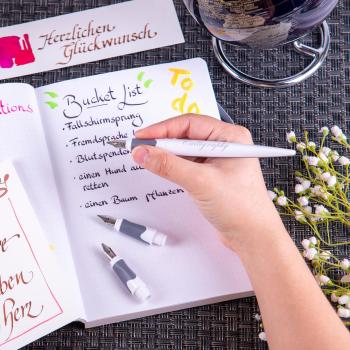 Herzlichen
Glückwunsch
Bucket List
To
do
· Fallschirmsprung
· Fremdsprache
· Blutspenden
· einen Hund aus
retten
· einen Baum pflanzen